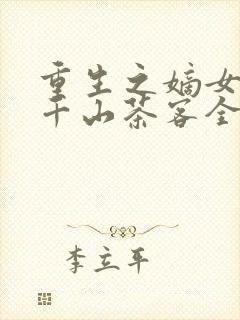 重生之嫡女
千山茶客全
李立平